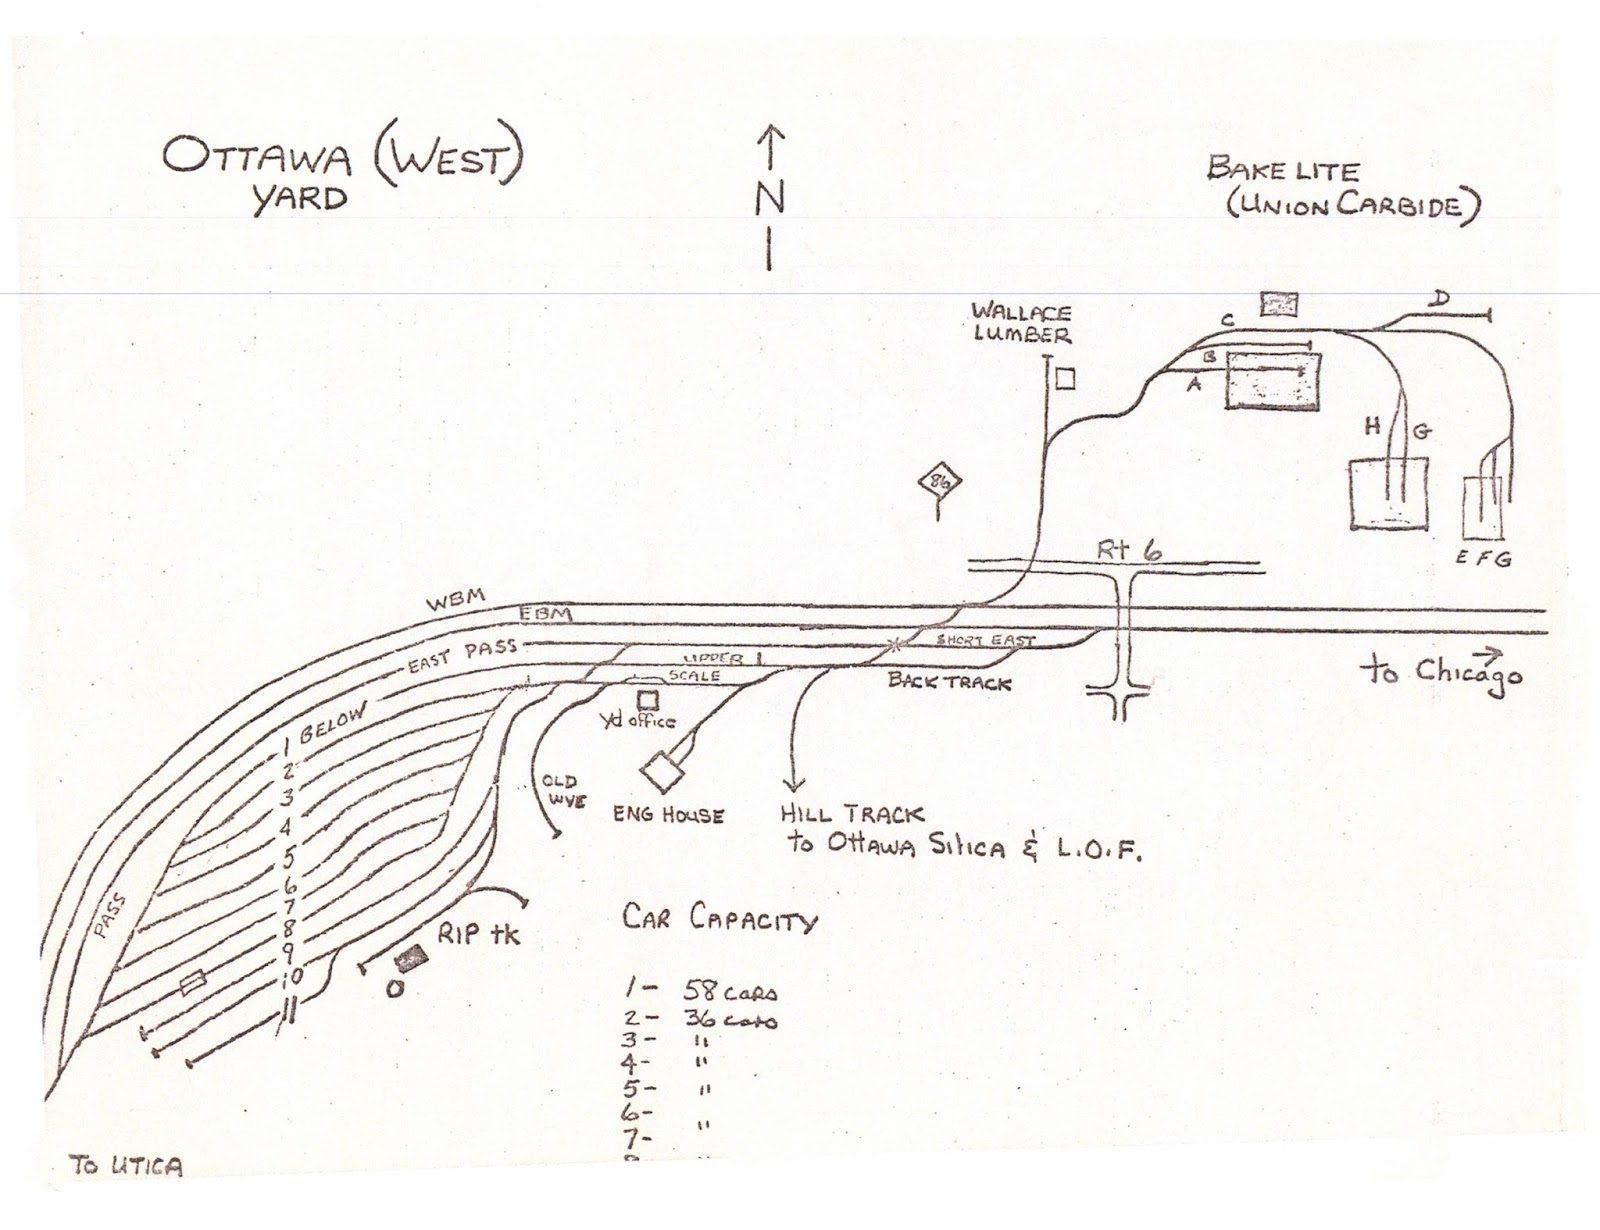 OTTAWA (WEST)
YARD
N
BAKELITE
(UNION CARBIDE)
WALLACE
LUMBER
D
C
B
A
H
G
E F G
86
Rt 6
WBM
EBM
EAST PASS
SHORT EAST
UPPER 1
SCALE
BACK TRACK
to Chicago
yd office
1 BELOW
2
3
4
5
6
7
8
9
10
11
PASS
OLD
WYE
ENG HOUSE
HILL TRACK
to Ottawa Silica & L.O.F.
RIP tk
CAR CAPACITY
1- 58 cars
2- 36 cars
3- "
4- "
5- "
6-
"
7-
TO UTICA